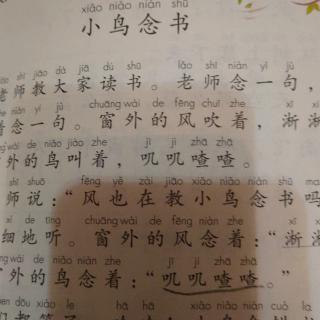 xiǎo niǎo niàn shū
小鸟念书
shī jiāo dà jiā dú shū lǎo shī niàn yí jù
老师教大家读书。老师念一句，
niàn yí jù chuāng wài de fēng chuī zhe xī xī
着念一句。窗外的风吹着，淅淅
de niǎo jiào zhe jī jī zhā zhā
的鸟叫着，叽叽喳喳。
shī shuō fēng yě zài jiāo xiǎo niǎo niàn shū ma
师说：“风也在教小鸟念书吗
xì de tīng chuāng wài de fēng niàn zhe xī xī
细地听。窗外的风念着：“淅淅
de niǎo niàn zhe jī jī zhā zhā
的鸟念着：“叽叽喳喳。”